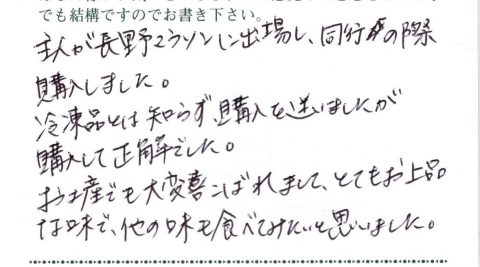 でも結構ですのでお書き下さい。
主人が長野マラソンに出場し、同行の際
購入しました。
冷凍品とは知らず、購入を迷いましたが
購入して正解でした。
お土産でも大変喜こばれまして、とてもお上品
な味で、他の味も食べてみたいと思いました。